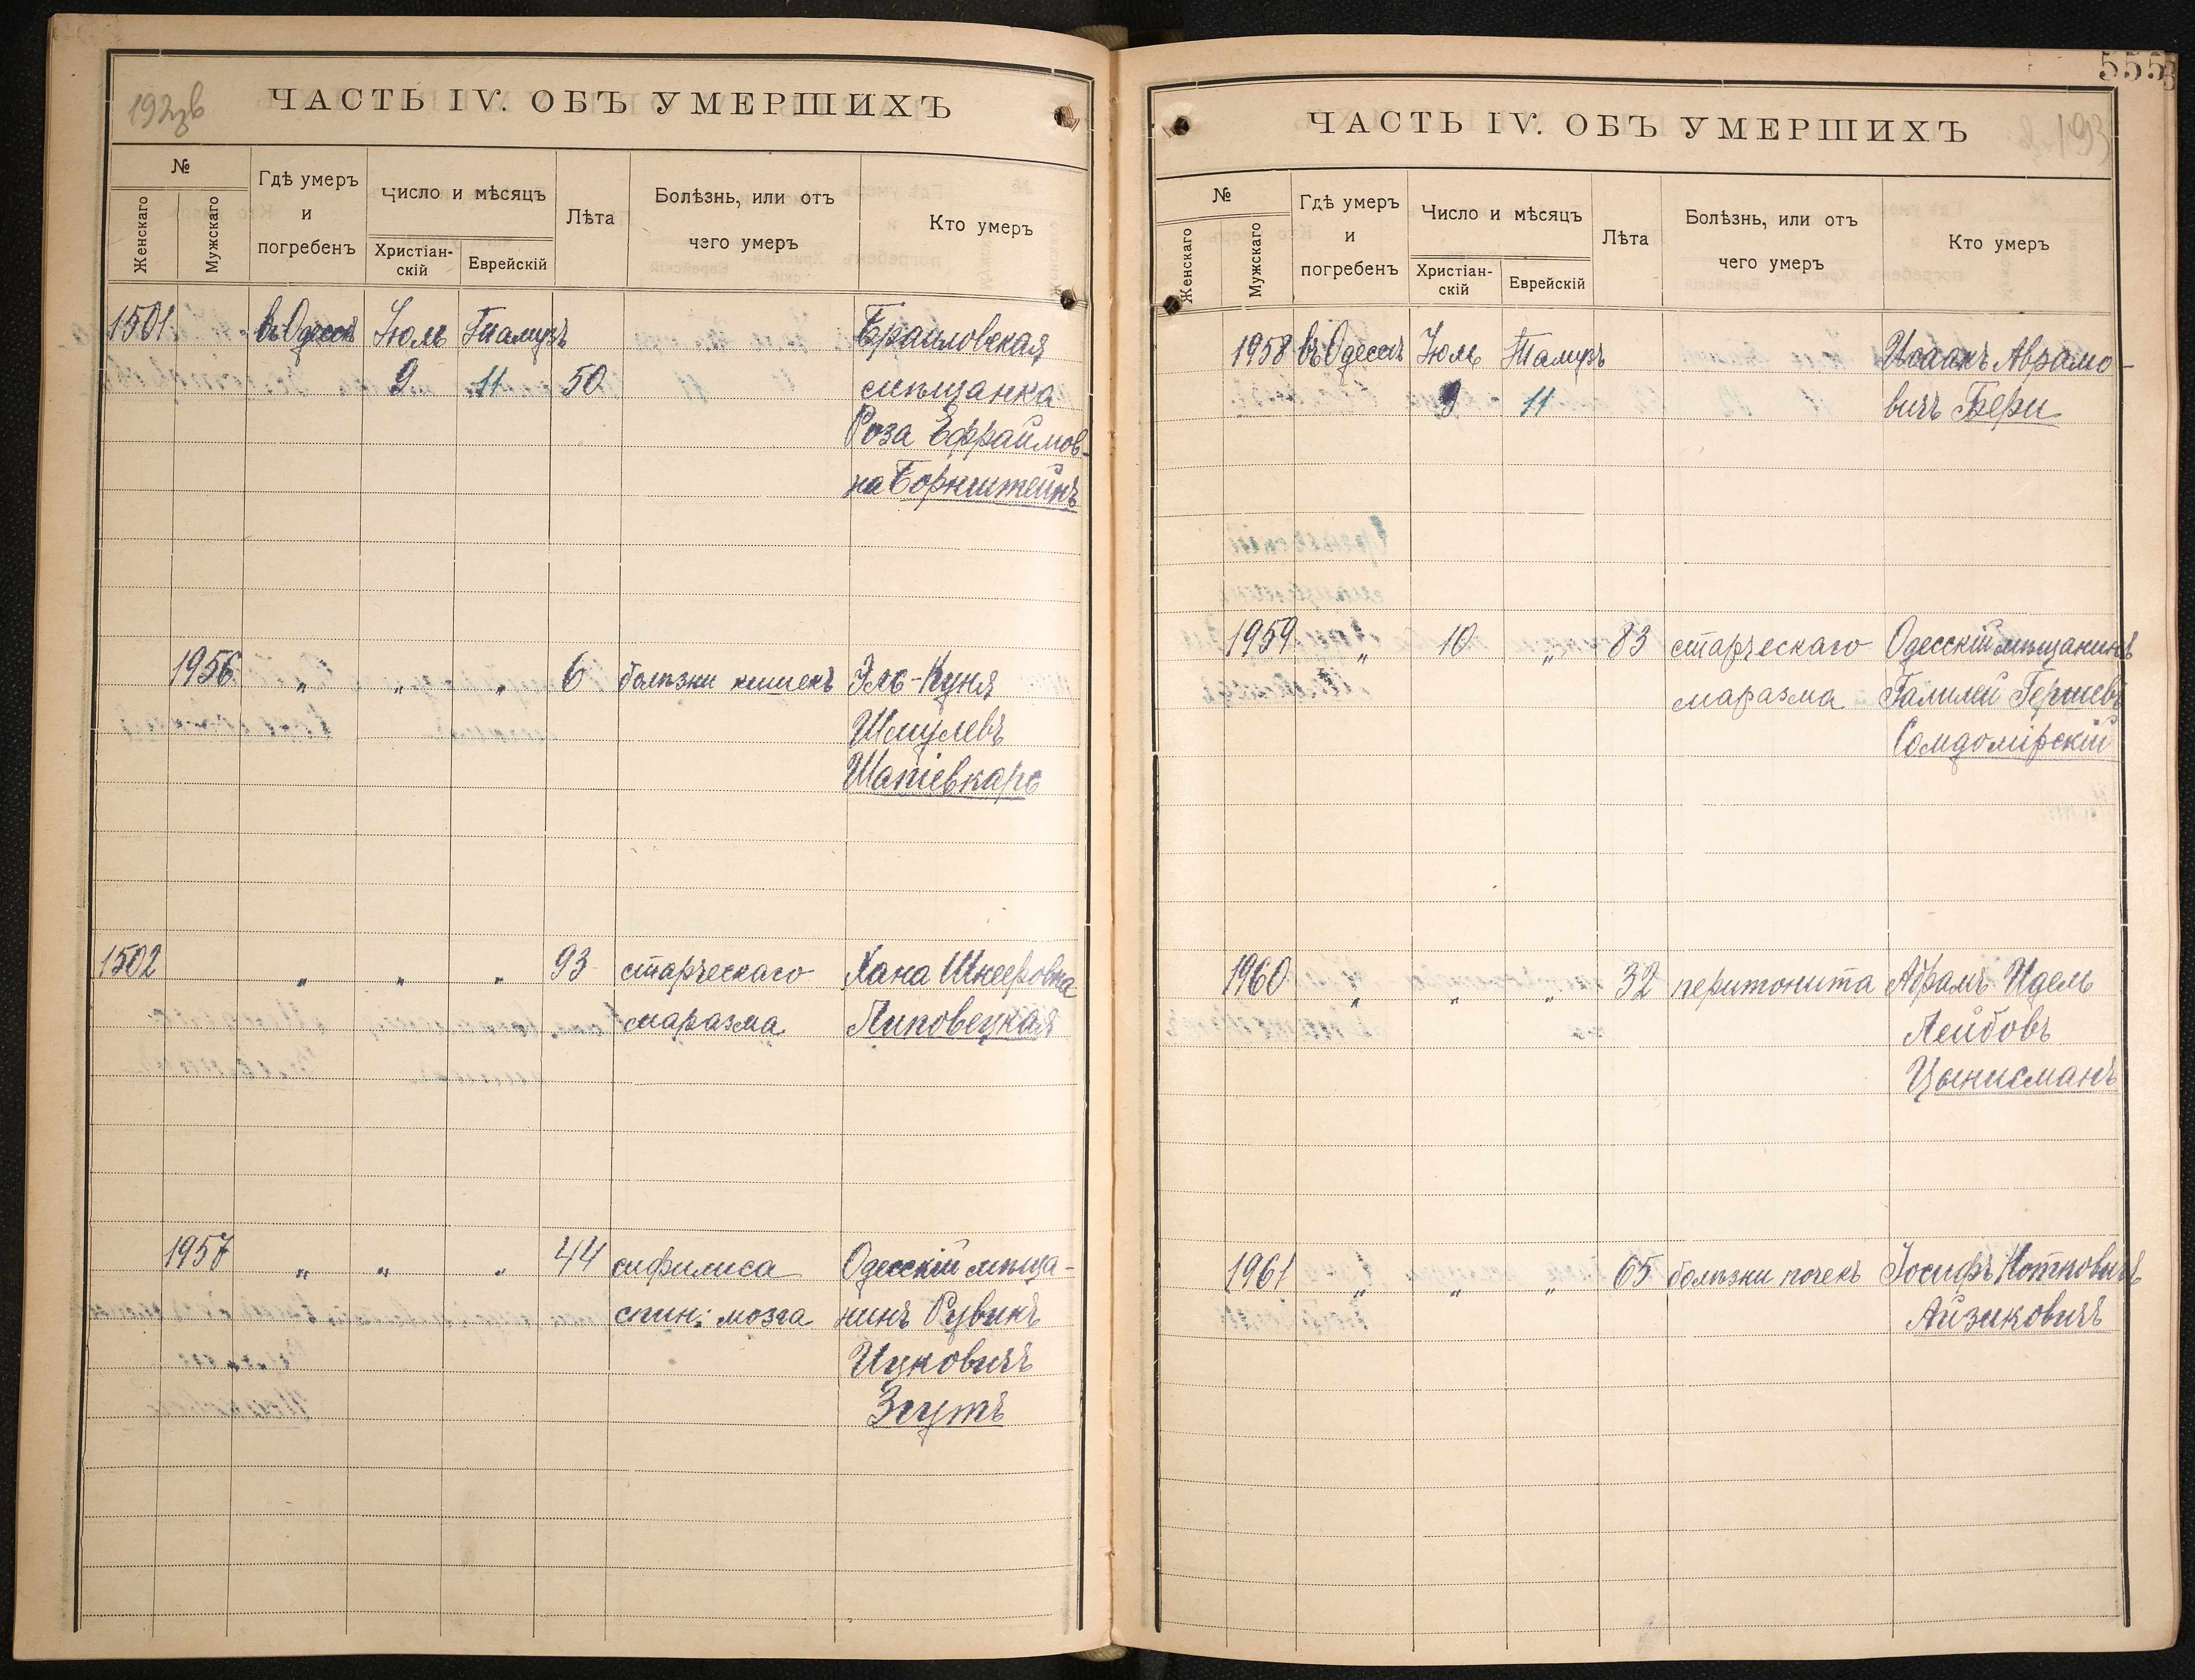 192 зв
ЧАСТЬ IV. ОБЪ УМЕРШИХЪ
№
Женскаго
Мужскаго
Гдѣ умеръ
и
погребенъ
Число и мѣсяцъ
Христіан-
скій
Еврейскій
Лѣта
Болѣзнь, или отъ
чего умеръ
Кто умеръ
1501 въ Одессѣ Іюль Тамузъ Браиловская
9 11 50 мѣщанка
Роза Ефраимов-
на Борнштейнъ
1956 „ „ „ 6 болѣзни кишекъ Эль-Куня
Шмулевъ
1502 „ „ „ 93 старческаго Хана Шнееровна
маразма Липовецкая
1957 „ „ „ 44 сифилиса Одесскій мѣща-
спин: мозга нинъ Рувинъ
Ицковичъ
Згутъ
555
193
ЧАСТЬ IV. ОБЪ УМЕРШИХЪ
№
Женскаго
Мужскаго
Гдѣ умеръ
и
погребенъ
Число и мѣсяцъ
Христіан-
скій
Еврейскій
Лѣта
Болѣзнь, или отъ
чего умеръ
Кто умеръ
1958 въ Одессѣ Іюль Тамузъ Исаакъ Аврамо-
9 11 вичъ Бери
1959 „ 10 „ 83 старческаго Одесскій мѣщанинъ
маразма Гамшей Гершевъ
Сомдомірскій
1960 „ „ „ 32 перитонита Абрамъ Идель
Лейбовъ
Цынисманъ
1961 „ „ „ 65 болѣзни почекъ Іосифъ Нотковичъ
Айзиковичъ